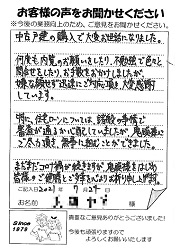 お客様の声をお聞かせください
※今後の業務向上のため、ご意見をお聞かせください
中古戸建の購入で大変お世話になりました。
何度も内覧のお願いをしたり、不動産で色々と
問合せをしたり、お手数をおかけしましたが、
嫌な顔せず迅速にご対応頂き大変感謝
しています。
特に、住宅ローンについては、諸経費の準備で
審査が通るか心配していましたが、尾頭様に
ご尽力頂き、無事に組むことができました。
まだまだコロナ禍が続きますが、尾頭様をはじめ
皆様のご健康とご多幸を心よりお祈り申し上げます。
ご記入日 2021年 7月27日
お名前 様
Since
1978
貴重なご意見ありがとうございました!
今後も頑張りますので
よろしくお願いいたします